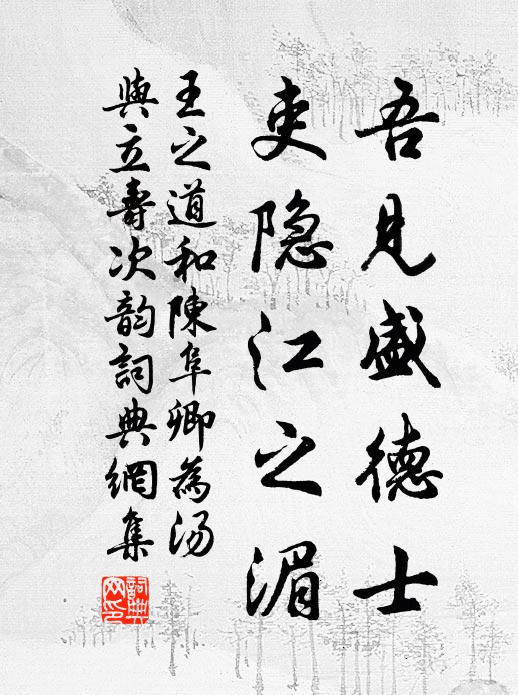 吾見盛德士
吏隐江之湄
王之道和陳阜卿為汤
與立壽次韵詞典網集